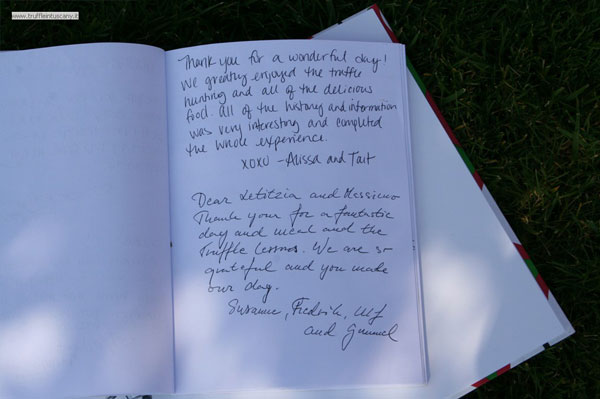 www.truffleintuscany.it
Thank you for a wonderful day!
We greatly enjoyed the truffle
hunting and all of the delicious
food. All of the history and information
was very interesting and completed
the whole experience.
xoxo - Alissa and Tait
Dear Letitzia and Massimo
Thank your for a fantastic
day and meal and the
Truffle Lessons. We are so
grateful and you made
our day.
Susanne, Fredrik, Ulf
and Gunnel